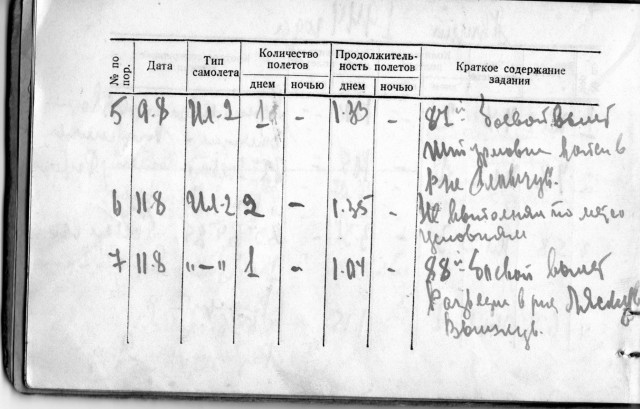 № по пор.
Дата
Тип самолета
Количество полетов
Продолжительность полетов
Краткое содержание задания
днем
ночью
днем
ночью
5 9.8 Ил-2 1 - 1.33 - 87й боевой вылет
войск в
р-не
6 11.8 Ил-2 2 - 1.35 - Не выполнял по метео
условиям
7 11.8 "—" 1 - 1.04 - 88й боевой вылет
в р-не